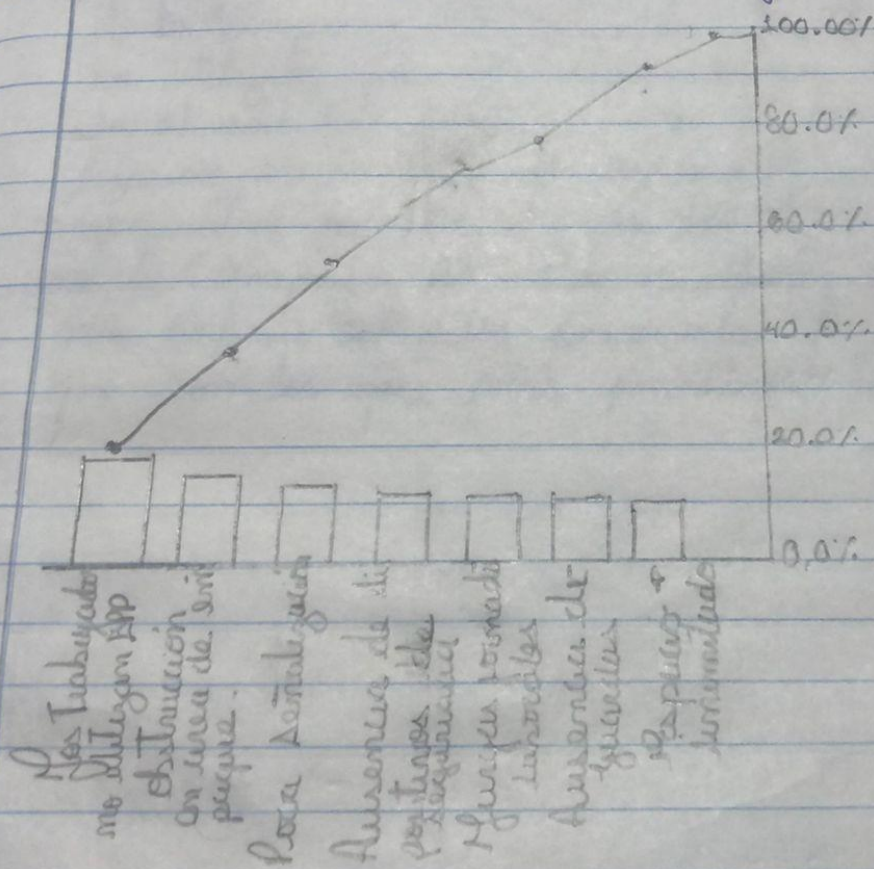 100.00%
80.0%
60.0%
40.0%
20.0%
0,0%
Los Trabajado
no Utilizan EPP
Obstrucción
en area de em
paque.
Poca Señalización
Ausencia de di
positivos de
seguridad
Largas Jornada
Laborales
Ausencia de
guardas
Espacio